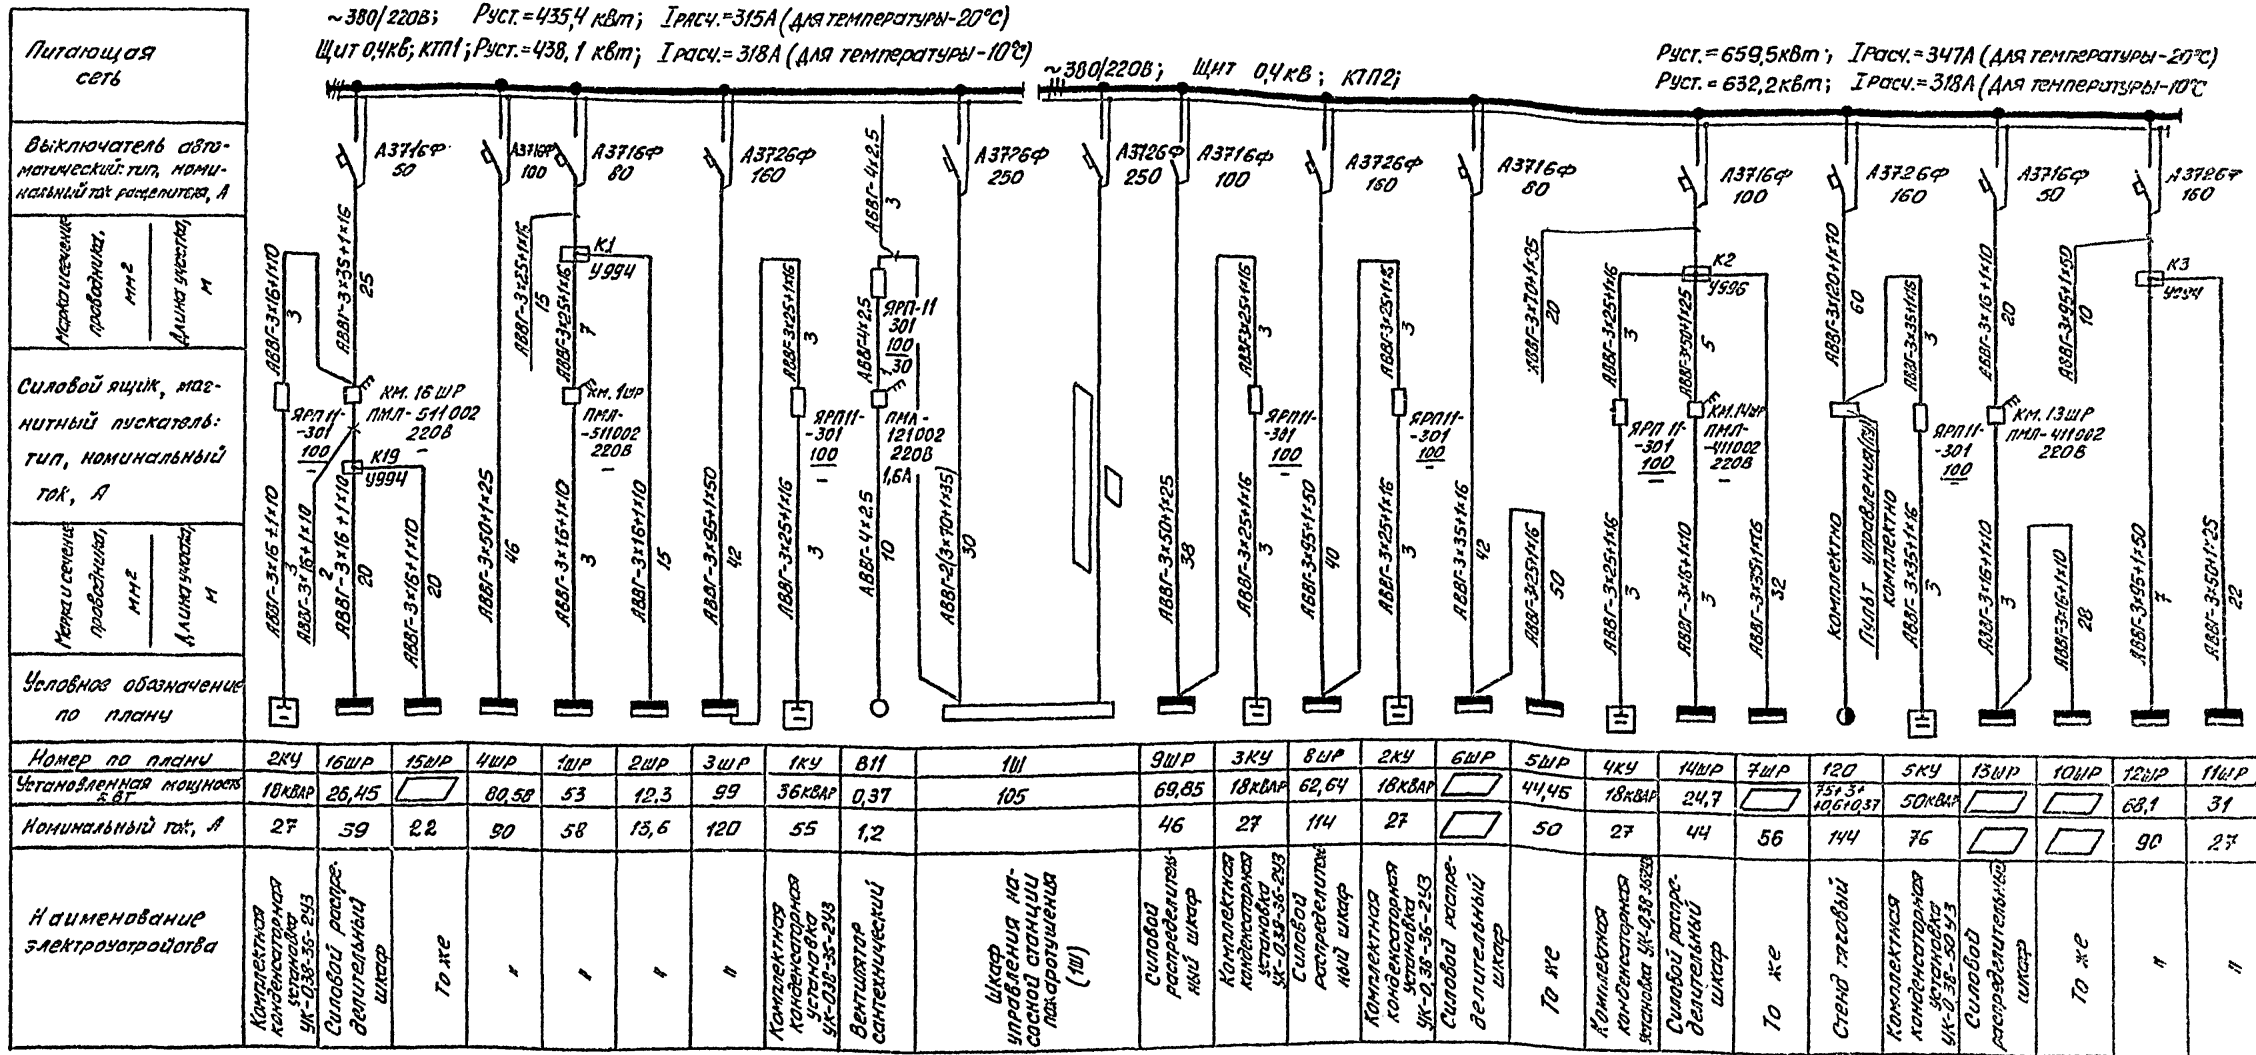 ~380/220В; Руст.=435,4 кВт; Iрасч.=315А (для температуры-20°С)
Щит 0,4кВ; КТП1; Руст.=438,1 кВт; Iрасч.=318А (для температуры-10°С)
~380/220В; Щит 0,4 кВ; КТП2;
Руст.=659,5кВт; Iрасч.=347А (для температуры-20°С)
Руст.=632,2кВт; Iрасч.=318А (для температуры-10°С
Питающая
сеть
Выключатель авто-
матический: тип, номи-
нальный ток расцепителя, А
А3716Ф
50
А3716Ф
100
А3716Ф
80
А3726Ф
160
АВВГ-4×2,5
3
А3726Ф
250
А3726Ф
250
А3716Ф
100
А3726Ф
160
А3716Ф
80
А3716Ф
100
А3726Ф
160
А3716Ф
50
А3726Ф
160
Марка и сечение
проводника,
мм²
Длина участка,
м
АВВГ-3×16+1×10
3
АВВГ-3×35+1×16
25
АВВГ-3×25+1×16
15
К1
У994
АВВГ-3×25+1×16
7
АВВГ-3×25+1×16
3
АВВГ-4×2,5
1
ЯРП-11
301
100
30
АВВГ-3×25+1×16
3
АВВГ-3×25+1×16
3
АВВГ-3×70+1×35
20
АВВГ-3×25+1×16
3
К2
У996
АВВГ-3×50+1×25
5
АВВГ-3×120+1×70
60
АВВГ-3×35+1×16
3
АВВГ-3×16+1×10
20
АВВГ-3×95+1×50
10
К3
У994
Силовой ящик, маг-
нитный пускатель:
тип, номинальный
ток, А
ЯРП11-
-301
100
–
КМ.16ШР
ПМЛ-511002
220В
–
К19
У994
КМ.1ШР
ПМЛ-
-511002
220В
–
ЯРП11-
-301
100
–
ПМЛ-
121002
220В
1,6А
ЯРП11-
-301
100
–
ЯРП11-
-301
100
–
ЯРП11-
-301
100
–
КМ.14ШР
ПМЛ-
-411002
220В
–
Пульт управления(ПУ)
комплектно
ЯРП11-
-301
100
–
КМ.13ШР
ПМЛ-411002
220В
Марка и сечение
проводника,
мм²
Длина участка,
м
АВВГ-3×16+1×10
3
АВВГ-3×16+1×10
2
АВВГ-3×16+1×10
20
АВВГ-3×16+1×10
20
АВВГ-3×50+1×25
46
АВВГ-3×16+1×10
3
АВВГ-3×16+1×10
15
АВВГ-3×95+1×50
42
АВВГ-3×25+1×16
3
АВВГ-4×2,5
10
АВВГ-2(3×70+1×35)
30
АВВГ-3×50+1×25
38
АВВГ-3×25+1×16
3
АВВГ-3×95+1×50
40
АВВГ-3×25+1×16
3
АВВГ-3×35+1×16
42
АВВГ-3×25+1×16
50
АВВГ-3×25+1×16
3
АВВГ-3×16+1×10
3
АВВГ-3×35+1×16
32
комплектно
АВВГ-3×35+1×16
3
АВВГ-3×16+1×10
3
АВВГ-3×16+1×10
28
АВВГ-3×95+1×50
7
АВВГ-3×50+1×25
22
Условное обозначение
по плану
Номер по плану 2КУ 16ШР 15ШР 4ШР 1ШР 2ШР 3ШР 1КУ В11 1Ш 9ШР 3КУ 8ШР 2КУ 6ШР 5ШР 4КУ 14ШР 7ШР 120 5КУ 13ШР 10ШР 12ШР 11ШР
Установленная мощность кВт 18КВАР 26,45 80,58 53 12,3 99 36КВАР 0,37 105 69,85 18КВАР 62,64 18КВАР 44,45 18КВАР 24,7 75+3+ +0,6+0,37 50КВАР 68,1 31
Номинальный ток, А 27 59 22 90 58 13,6 120 55 1,2 46 27 114 27 50 27 44 56 144 76 90 27
Наименование
электроустройства
Комплектная
конденсаторная
установка
УК-0,38-36-2У3
Силовой распре-
делительный
шкаф
То же
"
"
"
"
Комплектная
конденсаторная
установка
УК-0,38-36-2У3
Вентилятор
сантехнический
Шкаф
управления на-
сосной станции
пожаротушения
(1Ш)
Силовой
распределитель-
ный шкаф
Комплектная
конденсаторная
установка
УК-0,38-36-2У3
Силовой
распределитель-
ный шкаф
Комплектная
конденсаторная
установка
УК-0,38-36-2У3
Силовой распре-
делительный
шкаф
То же
Комплектная
конденсаторная
установка УК-0,38-36-2У3
Силовой распре-
делительный
шкаф
То же
Стенд тяговый
Комплектная
конденсаторная
установка
УК-0,38-50У3
Силовой
распределительный
шкаф
То же
"
"